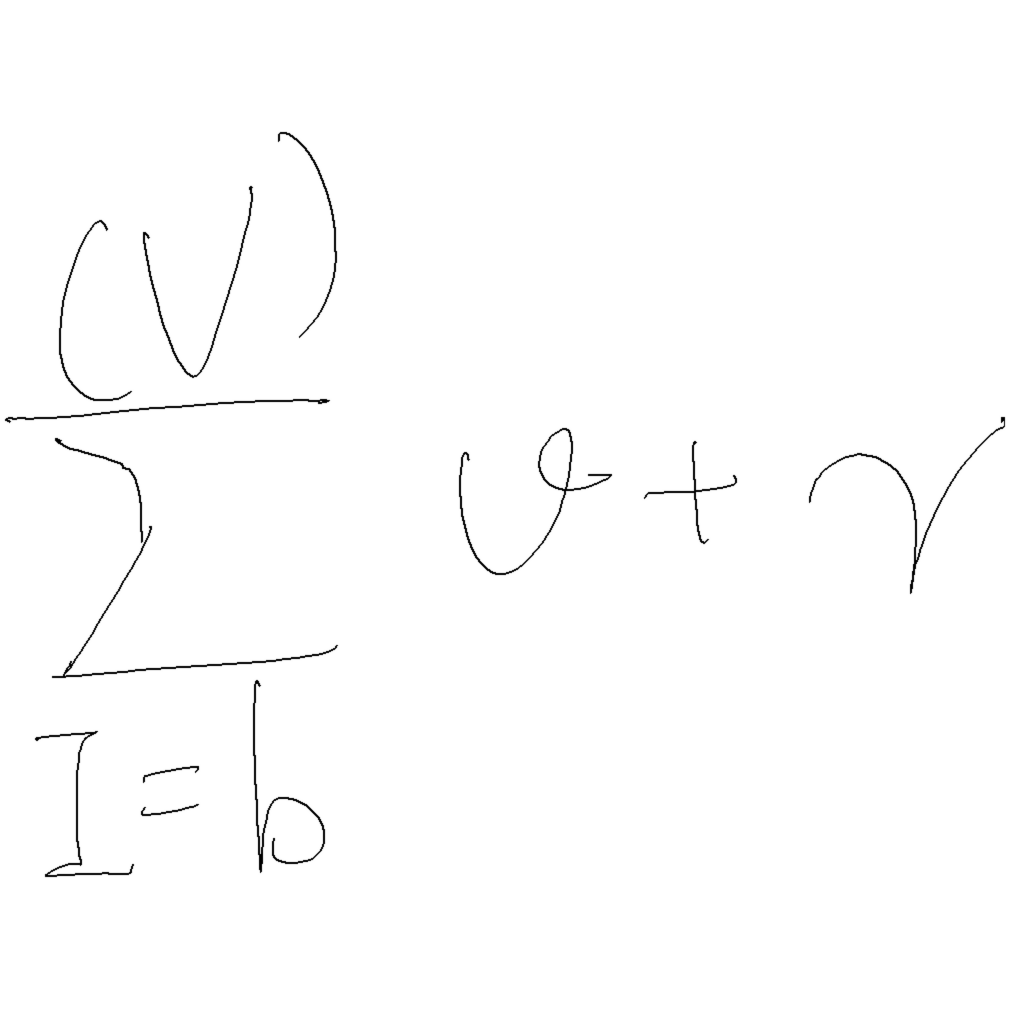 \sum_{I=b}^{(V)} v + \gamma